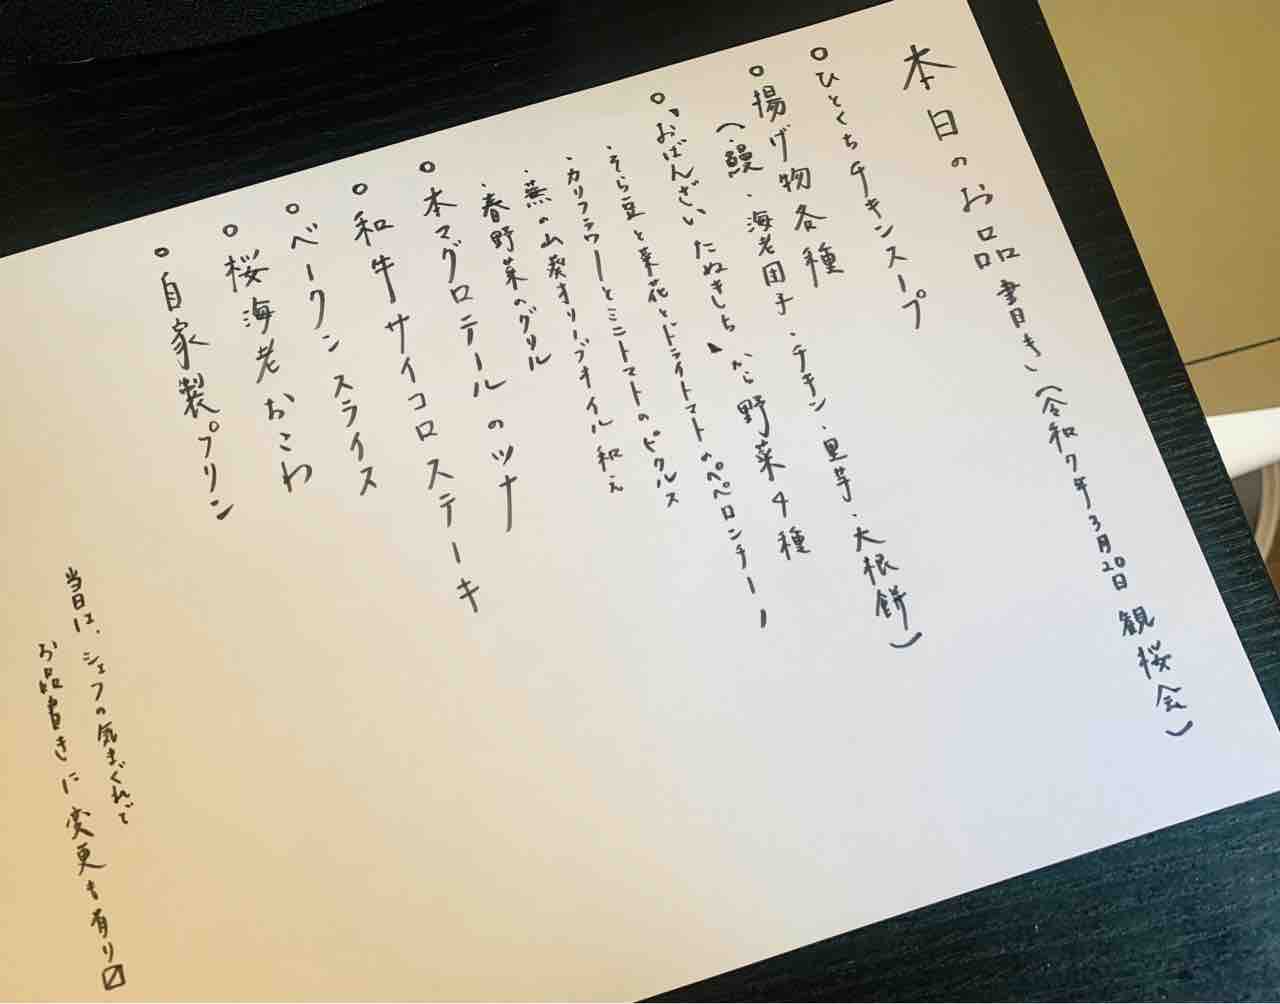 本日のお品書き(令和7年3月20日 観桜会)
○ひとくちチキンスープ
○揚げ物各種
(・鰻・海老団子・チキン・里芋・大根餅)
○〝おばんざい たぬきしち〟から野菜4種
・そら豆と菜花とドライトマトのペペロンチーノ
・カリフラワーとミニトマトのピクルス
・蕪の山葵オリーブオイル和え
・春野菜のグリル
○本マグロテールのツナ
○和牛サイコロステーキ
○ベークンスライス
○桜海老おこわ
○自家製プリン
当日は、シェフの気まぐれで
お品書きに変更も有り〼